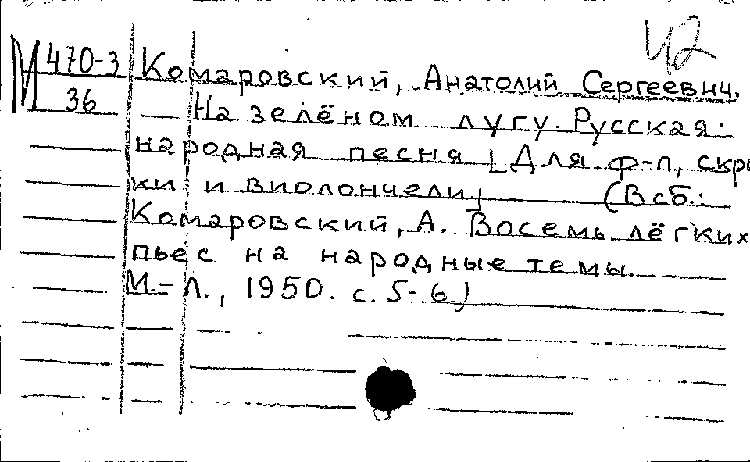 42
М 470-3 Комаровский, Анатолий Сергеевич.
36 На зелёном лугу. Русская
народная песня [Для ф-п, скрип
ки и виолончели] (В сб.:
Комаровский, А. Восемь лёгких
пьес на народные темы.
М.-Л., 1950. с. 5-6)